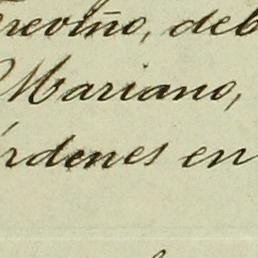 revino, deb
Mariano,
rdenes en